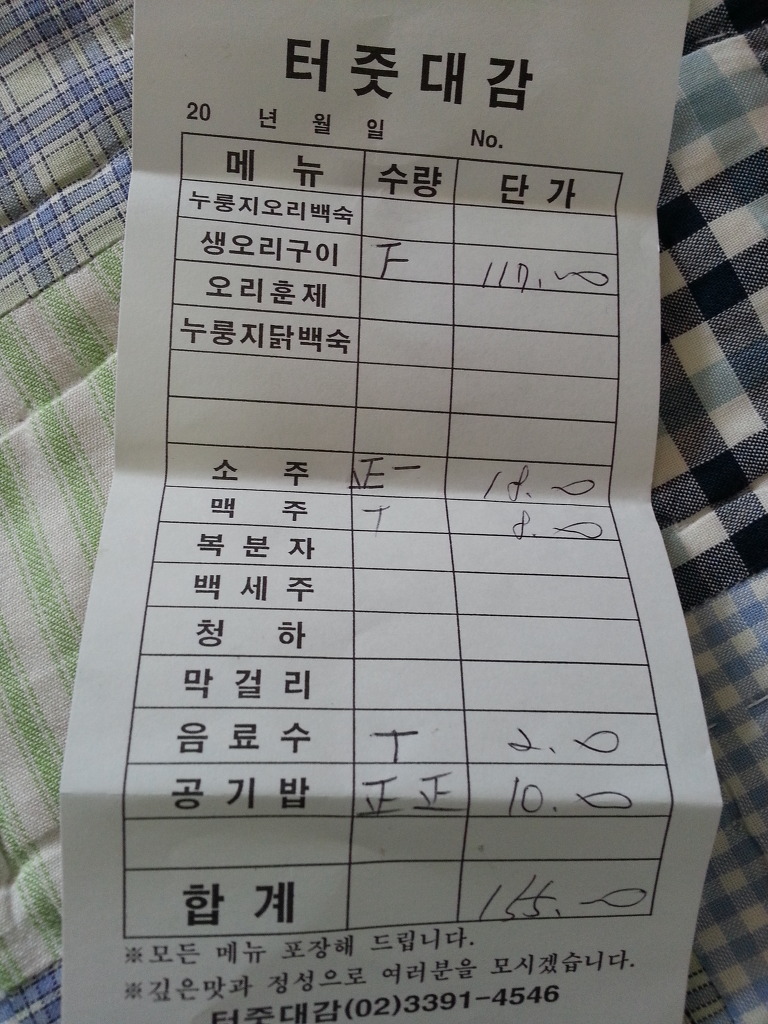 터줏대감
20 년 월 일 No.
메 뉴 수량 단 가
누룽지오리백숙
생오리구이 F 117.00
오리훈제
누룽지닭백숙
소 주 正一 18.00
맥 주 T 8.00
복 분 자
백 세 주
청 하
막 걸 리
음 료 수 T 2.00
공 기 밥 正 正 10.00
합 계 155.00
※모든 메뉴 포장해 드립니다.
※깊은맛과 정성으로 여러분을 모시겠습니다.
터줏대감(02)3391-4546